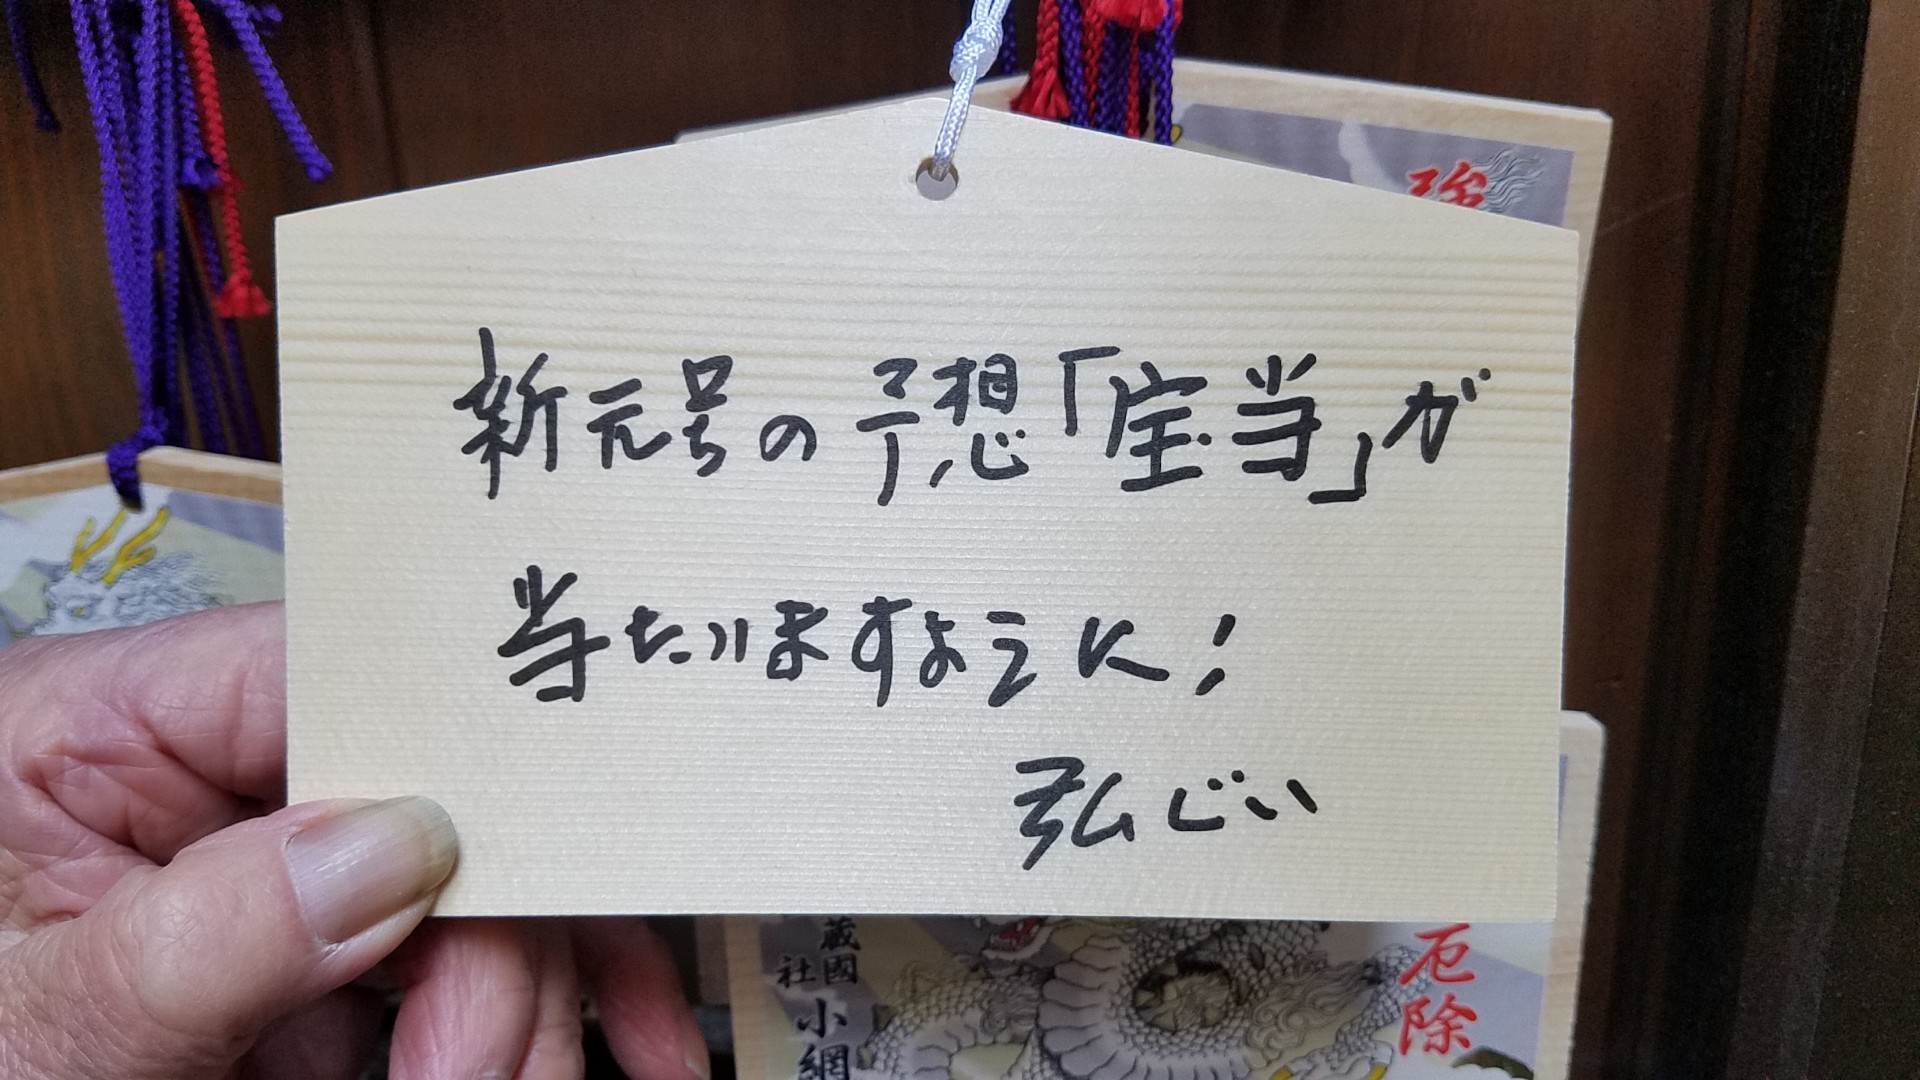 新元号の予想「宝当」が
当たりますように!
弘じい
強
厄除
蔵國
社 小網